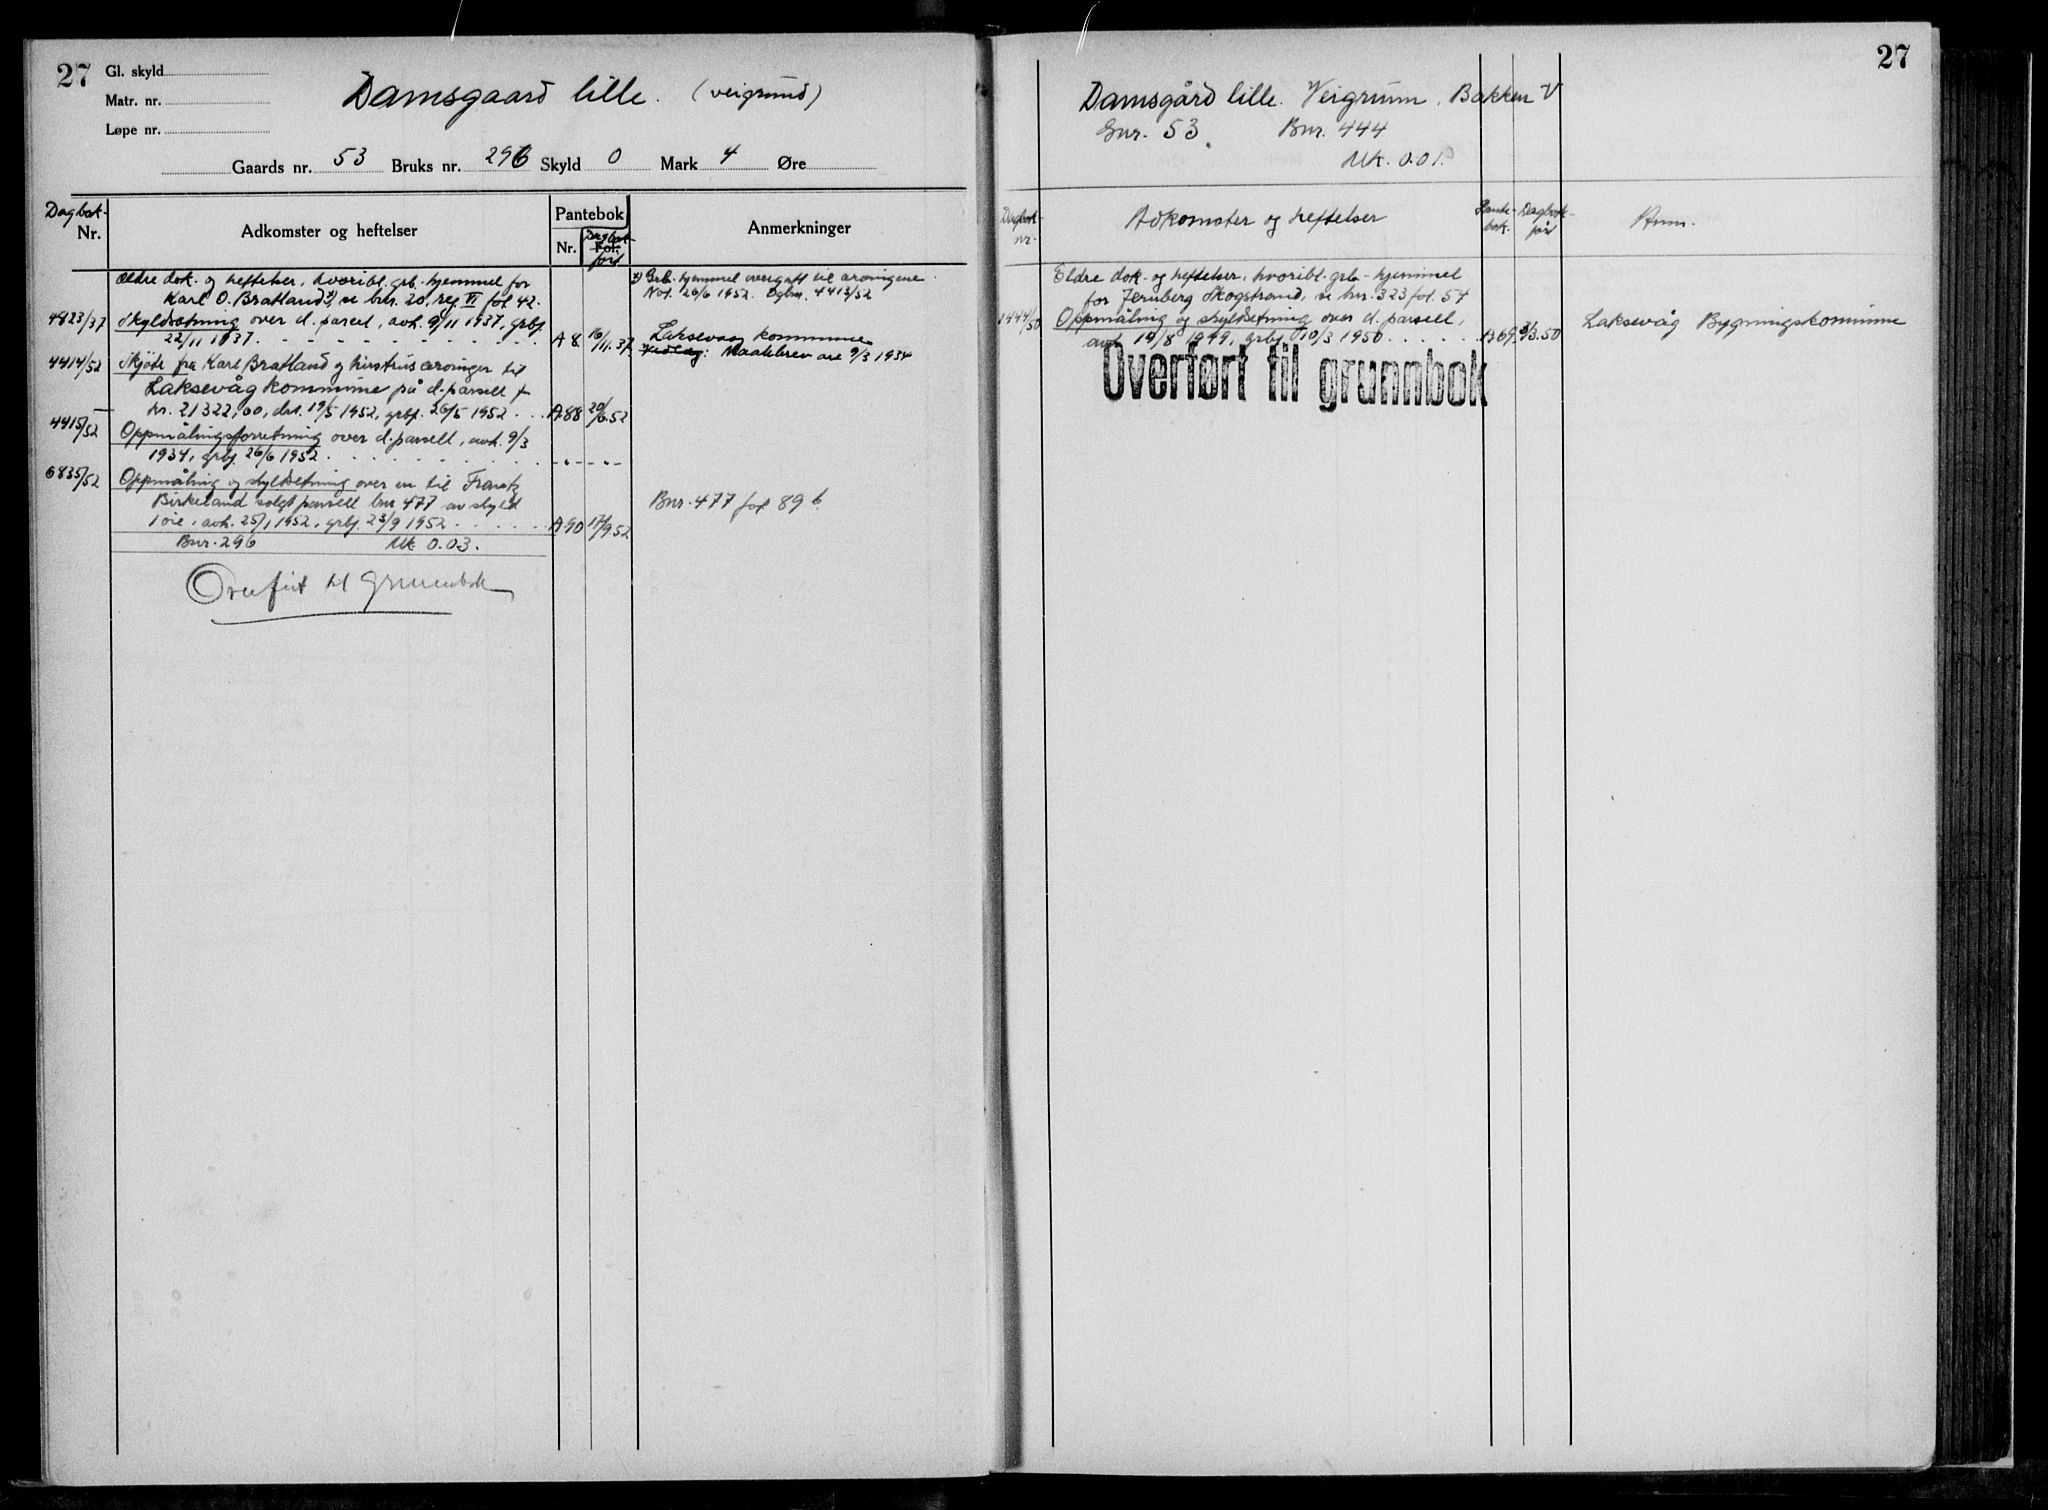 27
Gl. skyld
Matr. nr.
Løpe nr.
Damsgaard lille. (veigrund)
Gaards nr. 53 Bruks nr. 296 Skyld 0 Mark 4 Øre
Dagbok-
Nr.
Adkomster og heftelser
Pantebok
Nr.
Fol.
Dagbok-
ført
Anmerkninger
Ældre dok. og heftelser, hvoribl. grb. hjemmel for
Karl O. Bratland x), se bnr. 20, reg. VI fol 42.
x) Grb. hjemmel overgått til arvingene
Not. 26/6 1952. Dgbnr. 4413/52
4823/37 Skyldsetning over d. parcel, avh. 9/11 1937, grbf.
22/11 1937. A 8 16/11.37
Laksevaag kommune
Vedlag: Maalebrev av 9/3 1934
4414/52 Skjøte fra Karl Bratland og hustrus arvinger til
Laksevåg kommune på d. parsell for
kr. 21322,00, dat. 19/5 1952, grbf. 26/6 1952 . . A 88 20/6.52
4415/52 Oppmålingsforretning over d. parsell, avh. 9/3
1934, grbf. 26/6 1952 . - " - - " -
6835/52 Oppmåling og skyldsetning over en til Frantz
Birkeland solgt parsell bnr 477 av skyld
1 øre, avh. 25/1 1952, grbf. 23/9 1952 . . . A 90 17/9.52
Bnr. 477 fol 89 b.
Bnr. 296 Mk 0.03.
Overført til Grunnbok
27
Damsgård lille. Veigrunn. Bakken V
Gnr. 53. Bnr. 444
Mk. 0.01.
Dagbok-
nr.
Adkomster og heftelser
Pante-
bok.
Dagbok-
ført
Anm.
Eldre dok. og heftelser, hvoribl. grb-hjemmel
for Jernberg Skogstrand, se bnr. 323 fol. 54
1444/50 Oppmåling og skyldsetning over d. parsell,
avh 19/8 1949, grbf. 10/3 1950 . . . . . A 69. 3/3.50
Laksevåg Bygningskommune
Overført til grunnbok